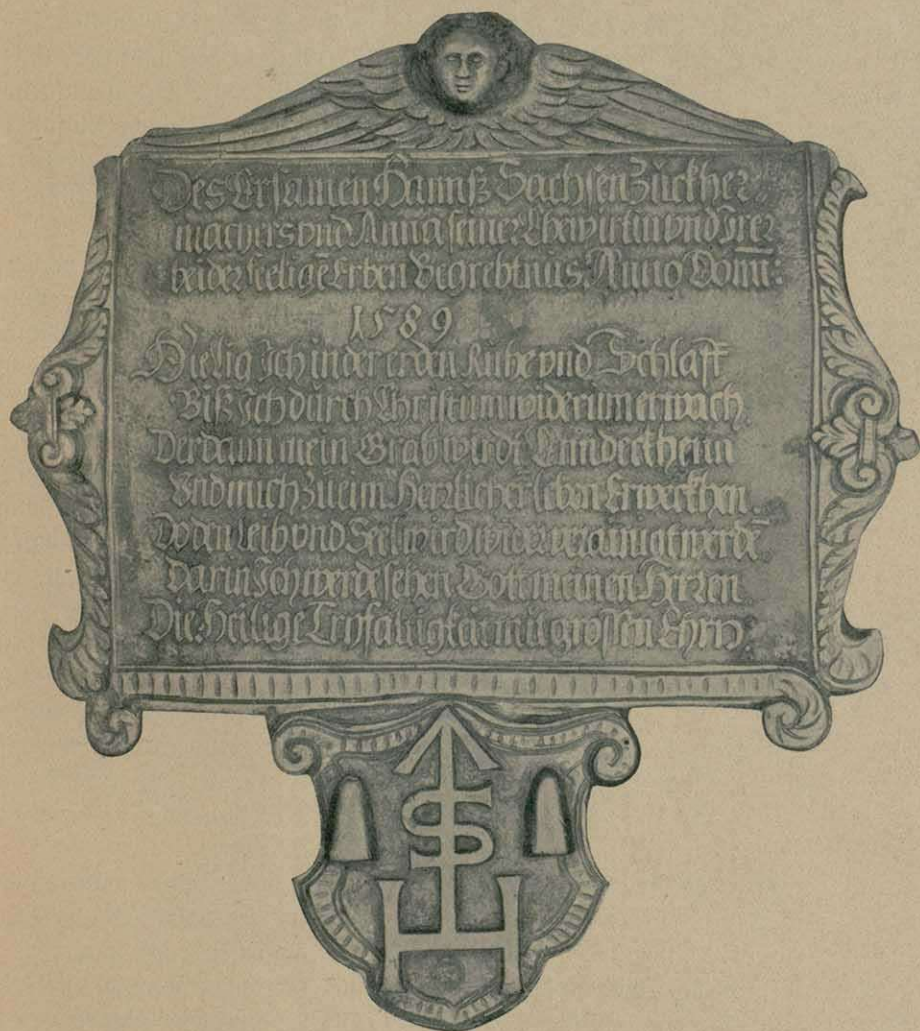 Des Ersamen Hannß Sachsen Zückher
machers vnd Anna seiner Ehewirtin vnd Irer
beider selige Erben Begrebtnus. Anno Domi:
1589
Hie lig Ich in der erden Ruhe vnd Schlaff
Biß Ich durch Christum widerum erwach
Der dann mein Grab wirdt
Vnd mich zu eim Herlichen leben Erweckhen
leib vnd Seel wird wider verainigt werdē
Darin Ich werde sehen Gott meinen Herren
Die Heilige Tryfaltigkait mit grossen Ehrn:
S
H